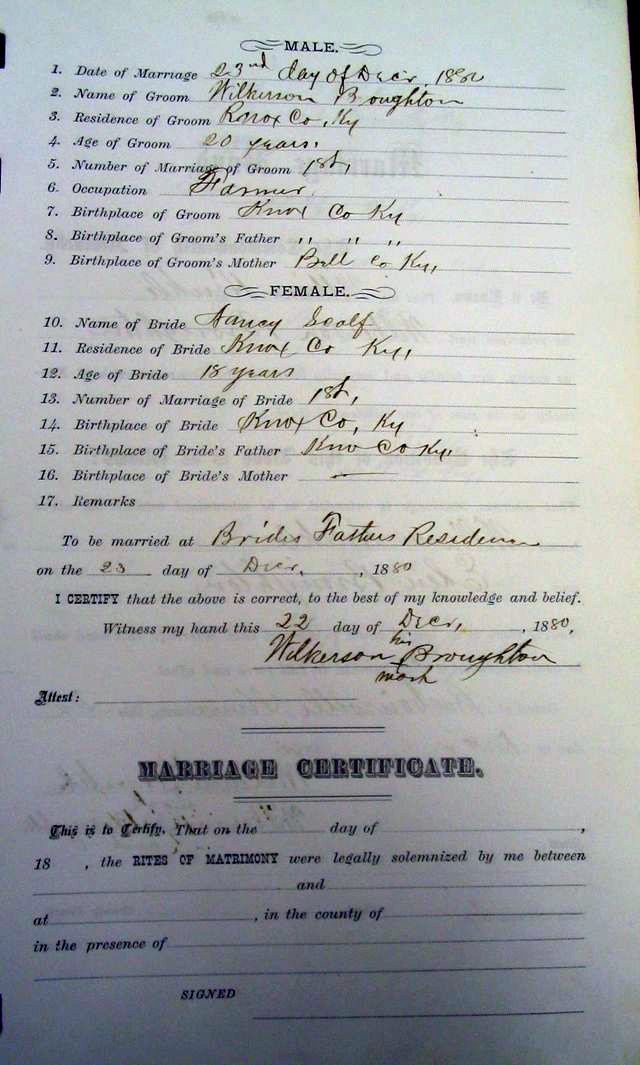 MALE.
1. Date of Marriage 23rd day of Decr. 1880
2. Name of Groom Wilkerson Broughton
3. Residence of Groom Knox Co, Ky
4. Age of Groom 20 years,
5. Number of Marriage of Groom 1st,
6. Occupation Farmer
7. Birthplace of Groom Knox Co Ky
8. Birthplace of Groom's Father " " "
9. Birthplace of Groom's Mother Bell Co Ky,
FEMALE.
10. Name of Bride Nancy Scalf
11. Residence of Bride Knox Co Ky,
12. Age of Bride 18 years
13. Number of Marriage of Bride 1st,
14. Birthplace of Bride Knox Co, Ky
15. Birthplace of Bride's Father Knox Co Ky,
16. Birthplace of Bride's Mother —
17. Remarks
To be married at Brides Fathers Residence
on the 23 day of Decr, , 1880
I CERTIFY that the above is correct, to the best of my knowledge and belief.
Witness my hand this 22 day of Decr, , 1880,
his
Wilkerson Broughton
mark
Attest:
MARRIAGE CERTIFICATE.
This is to Certify, That on the day of ,
18 , the RITES OF MATRIMONY were legally solemnized by me between
and
at , in the county of
in the presence of
SIGNED